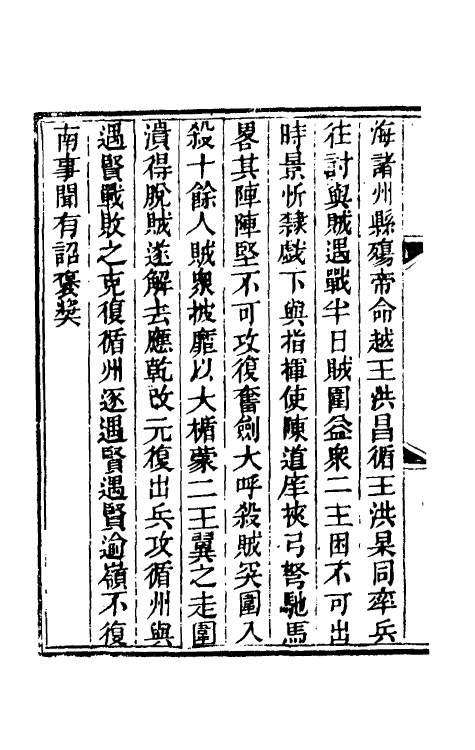 海諸州縣殤帝命越王洪昌循王洪杲同率兵
往討與賊遇戰半日賊圍益衆二王困不可出
時景忻隸戲下與指揮使陳道庠挾弓弩馳馬
畧其陣陣堅不可攻復奮劍大呼殺賊突圍入
殺十餘人賊衆披靡以大楯蒙二王翼之走圍
潰得脫賊遂解去應乾改元復出兵攻循州與
遇賢戰敗之克復循州逐遇賢遇賢逾嶺不復
南事聞有詔褒奖